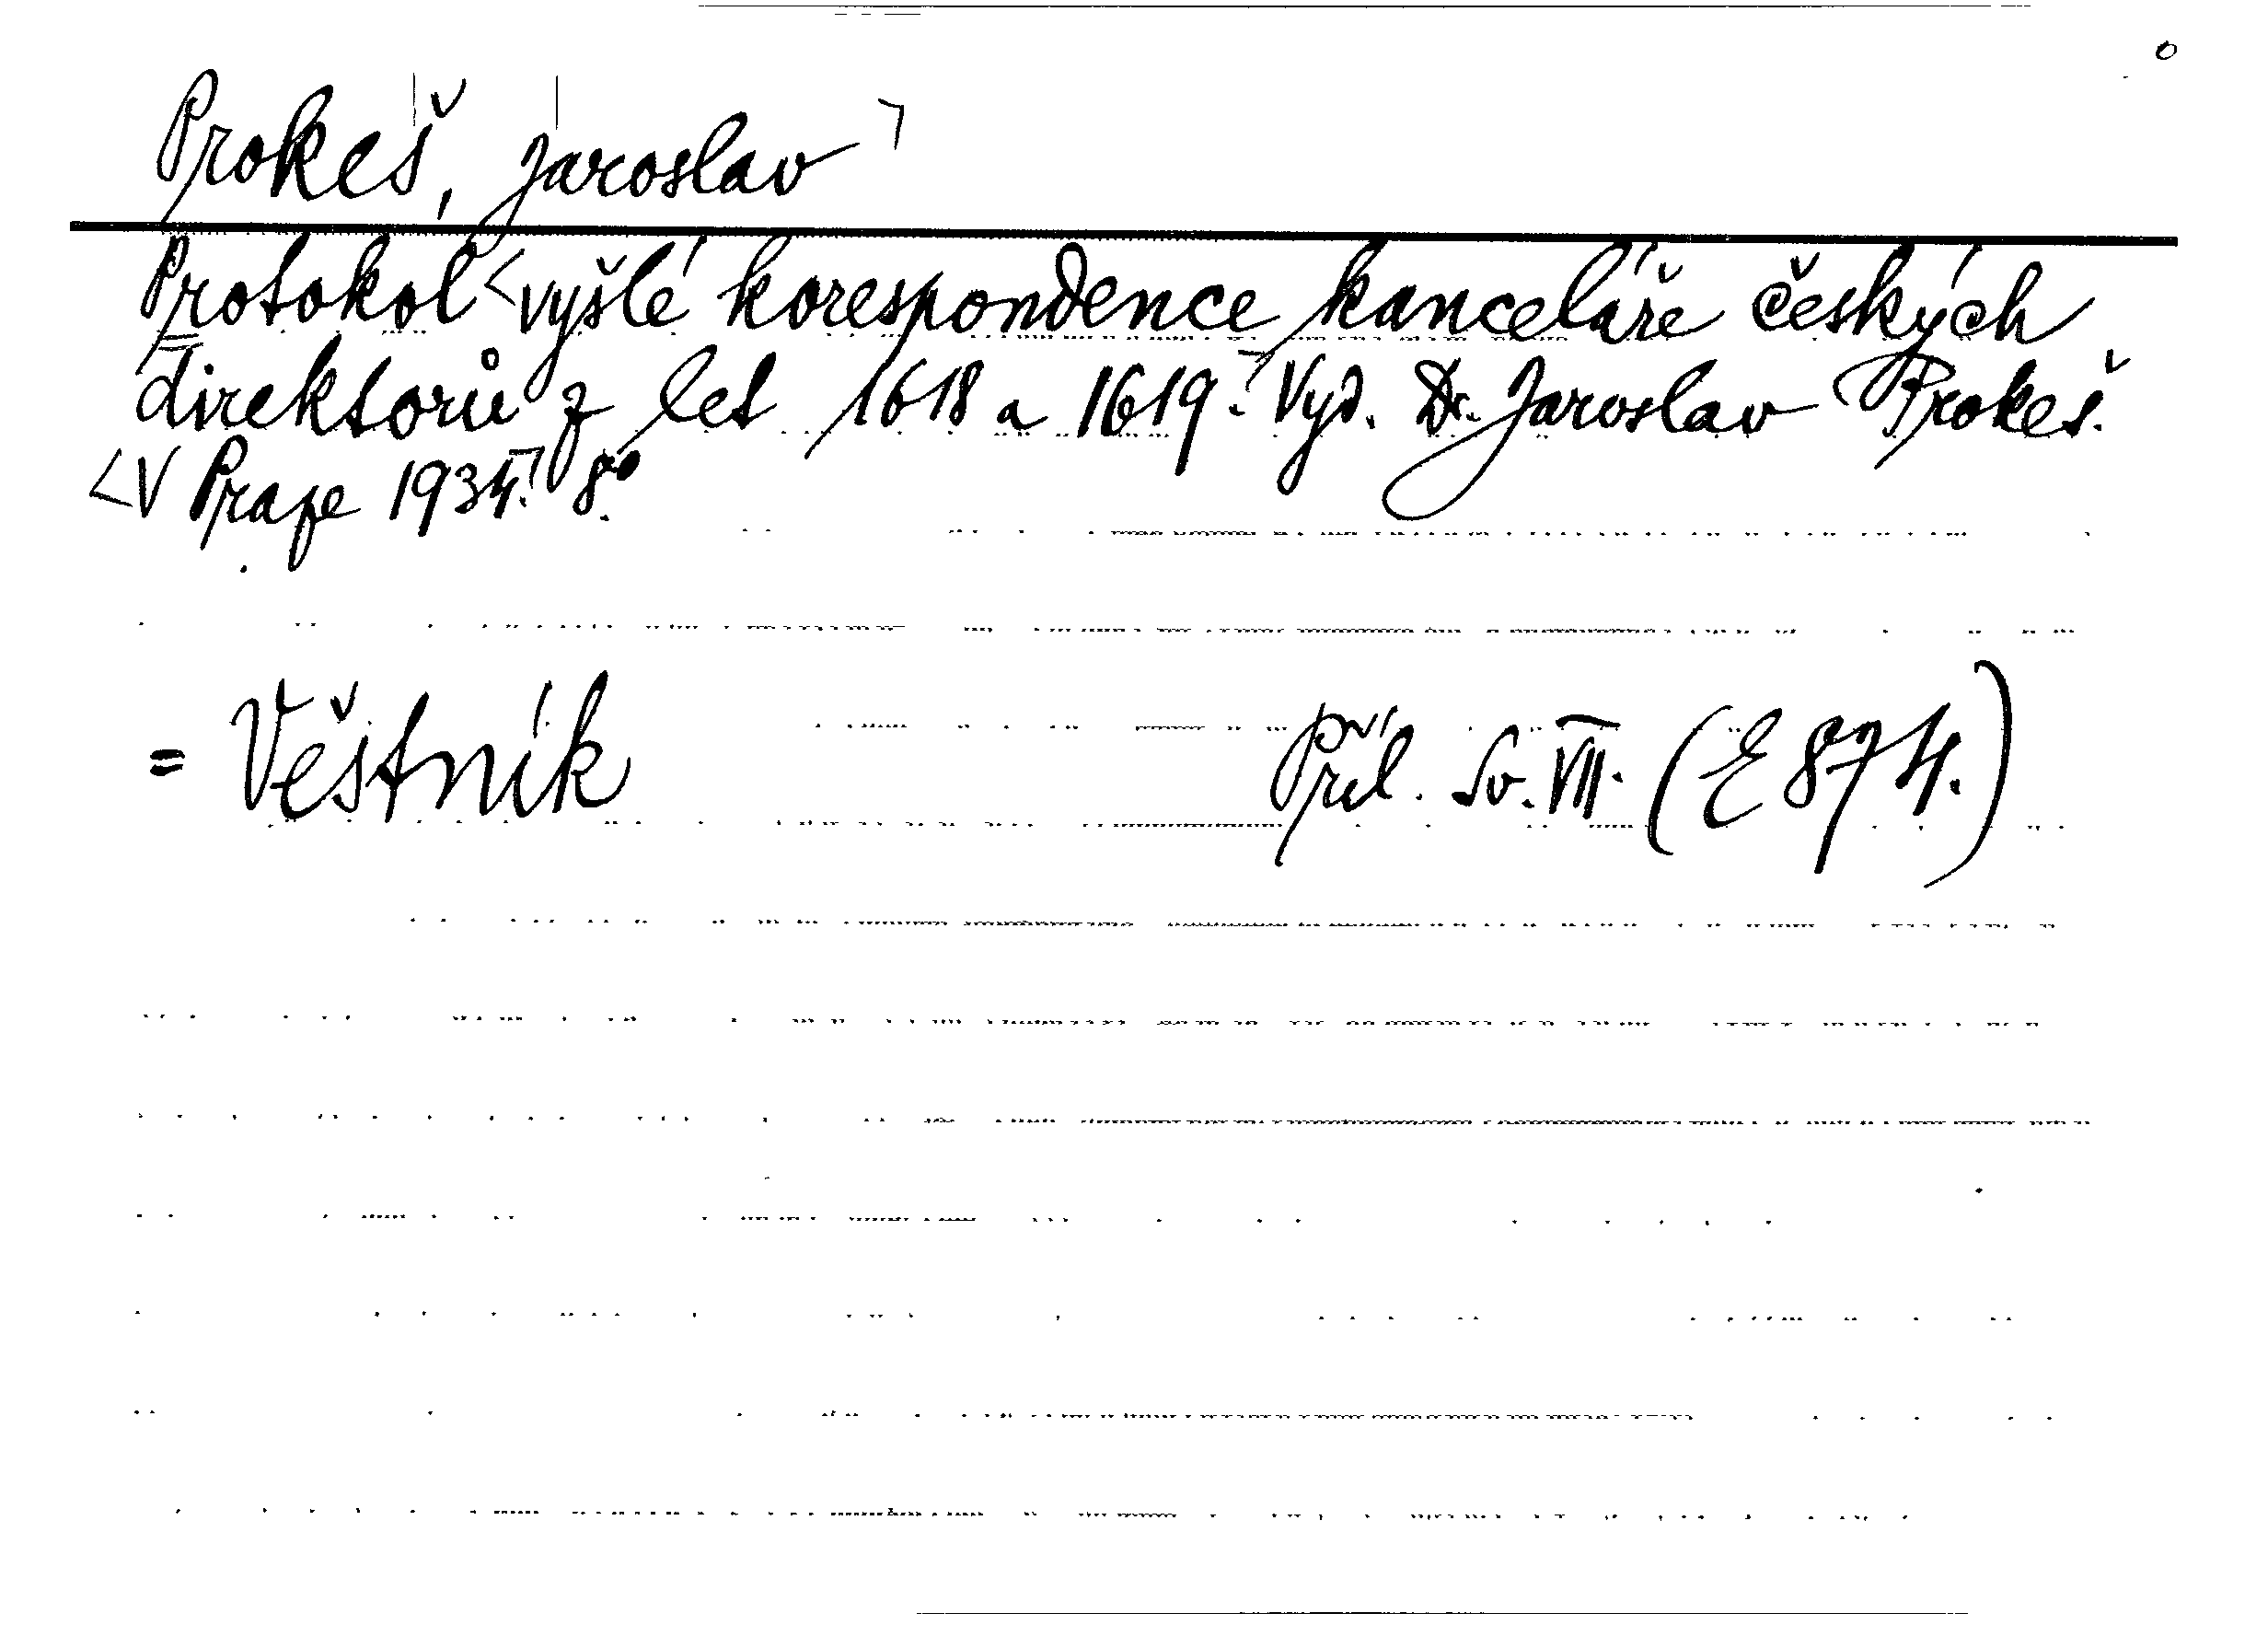 Prokeš, Jaroslav
Protokol vyšlé korespondence kanceláře českých
direktorů z let 1618 a 1619. Vyd. Dr. Jaroslav Prokeš.
V Praze 1934. 8°.
= Věstník Příl. Sv. VII. (E 874.)